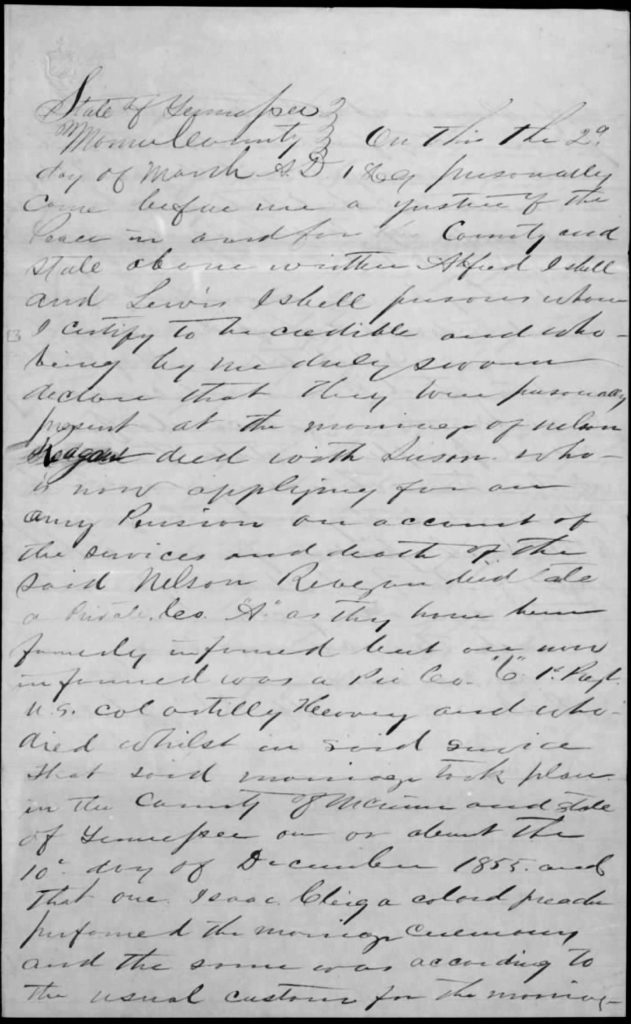 State of Tennessee }
Monroe County } On this the 29
day of March A.D. 1869 personally
came before me a Justice of the
Peace in and for County and
state above written Alfred Isbell
and Lewis Isbell persons whom
I certify to be credible and who
being by me duly sworn
declare that they were personally
present at the marriage of Nelson
Reagan died with Susan who
is now applying for an
army Pension on account of
the services and death of the
said Nelson Reagan died late
a Private Co. "A" as they have been
formerly informed but are now
informed was a Pri Co. "C" 1st Regt.
U.S. col artilly Heavy and who
died whilst in said service
that said marriage took place
in the County of McMinn and state
of Tennessee on or about the
10th day of December 1855 and
that one Isaac a colord preacher
performed the marriage ceremony
and the same was according to
the usual custom for the marriag-